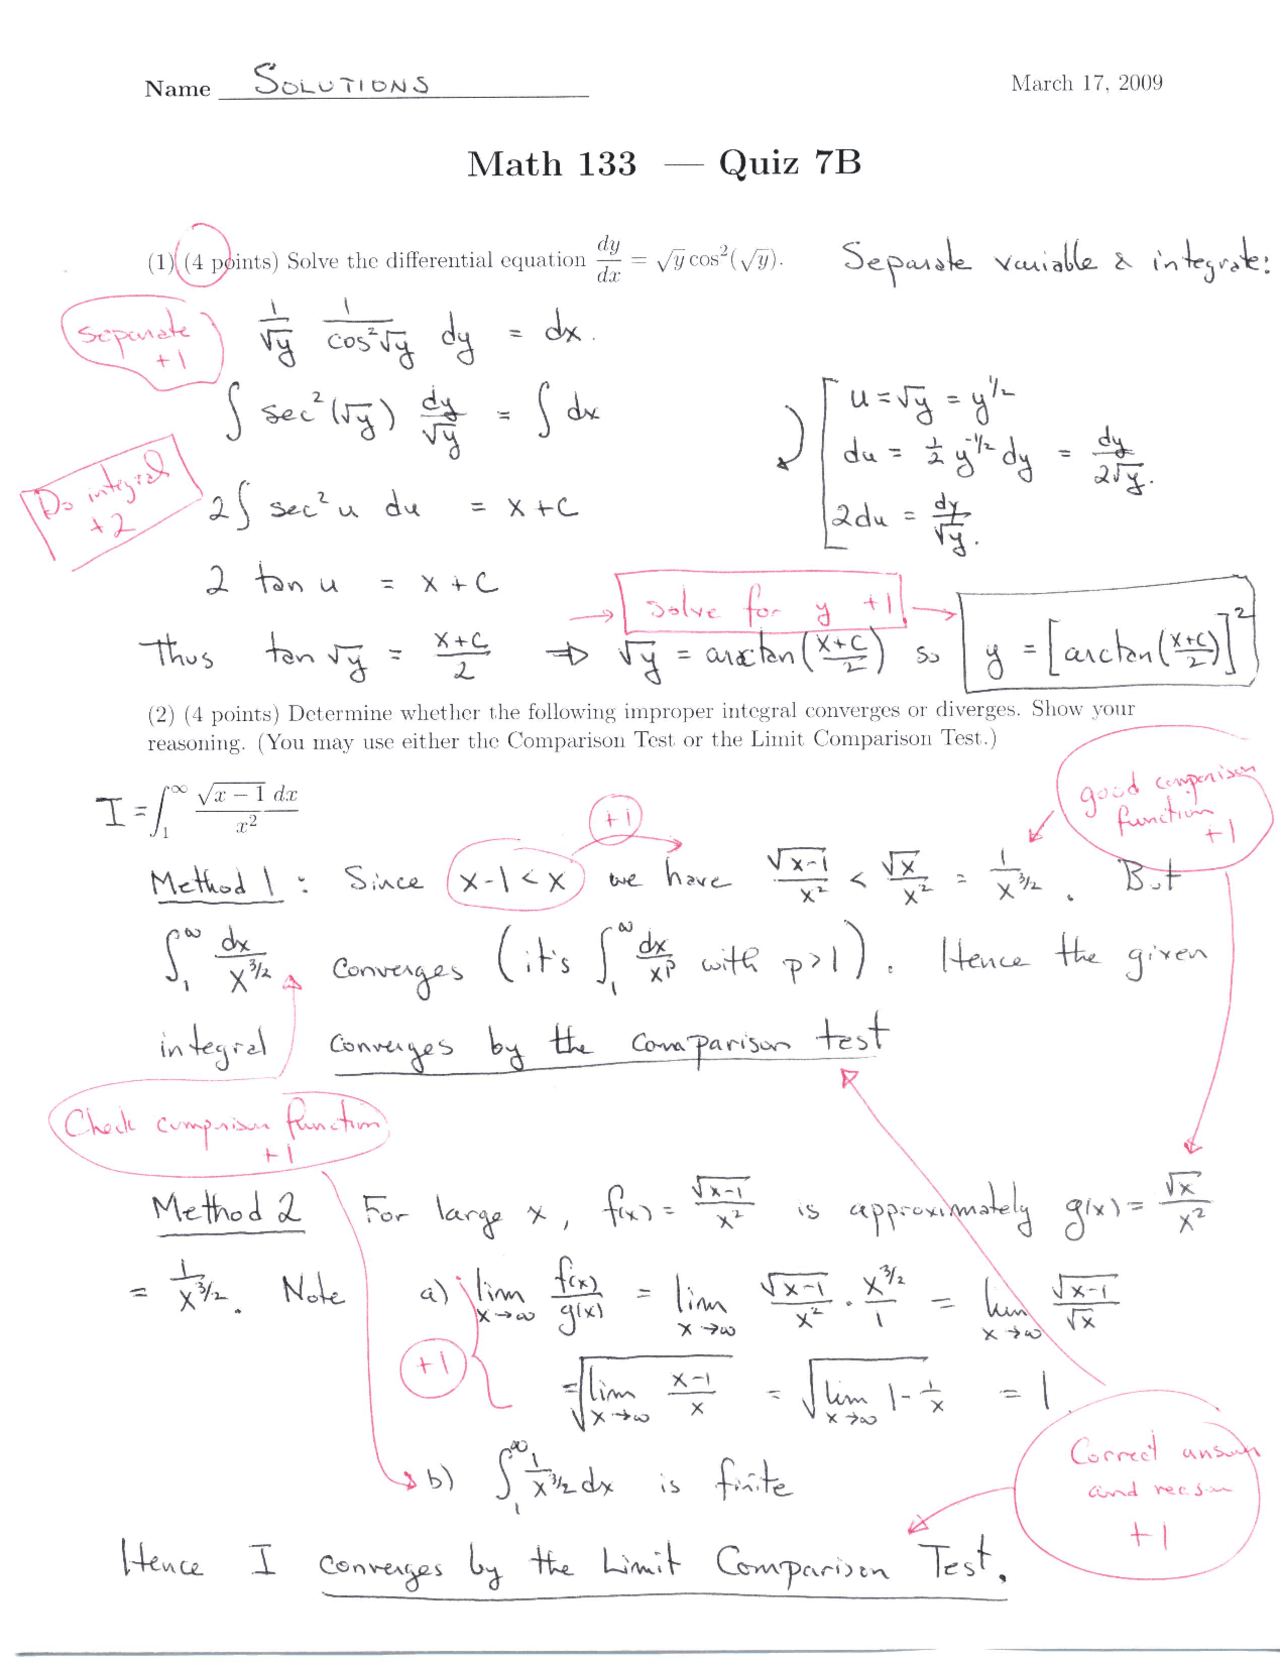 Name SOLUTIONS March 17, 2009
Math 133 — Quiz 7B
(1) (4 points) Solve the differential equation dy/dx = √y cos²(√y). Separate variable & integrate:
Separate +1
1/√y 1/cos²√y dy = dx.
∫ sec²(√y) dy/√y = ∫ dx
u = √y = y^1/2
du = 1/2 y^-1/2 dy = dy/2√y.
2du = dy/√y.
Do integral +2
2∫ sec² u du = x + C
2 tan u = x + C
solve for y +1
Thus tan √y = x+C/2 ⇒ √y = arctan(x+C/2) so y = [arctan(x+C/2)]²
(2) (4 points) Determine whether the following improper integral converges or diverges. Show your
reasoning. (You may use either the Comparison Test or the Limit Comparison Test.)
I = ∫₁^∞ √x − 1 dx / x²
good comparison function +1
+1
Method 1 : Since x-1 < x we have √x-1/x² < √x/x² = 1/x^3/2 . But
∫₁^∞ dx/x^3/2 converges (it's ∫₁^∞ dx/x^p with p>1). Hence the given
integral converges by the comparison test
Check comparison function +1
Method 2 For large x, f(x) = √x-1/x² is approximately g(x) = √x/x²
= 1/x^3/2. Note a) lim x→∞ f(x)/g(x) = lim x→∞ √x-1/x² · x^3/2/1 = lim x→∞ √x-1/√x
+1
= √lim x→∞ x-1/x = √lim x→∞ 1-1/x = 1
b) ∫₁^∞ 1/x^3/2 dx is finite
Correct answer and reason +1
Hence I converges by the Limit Comparison Test.